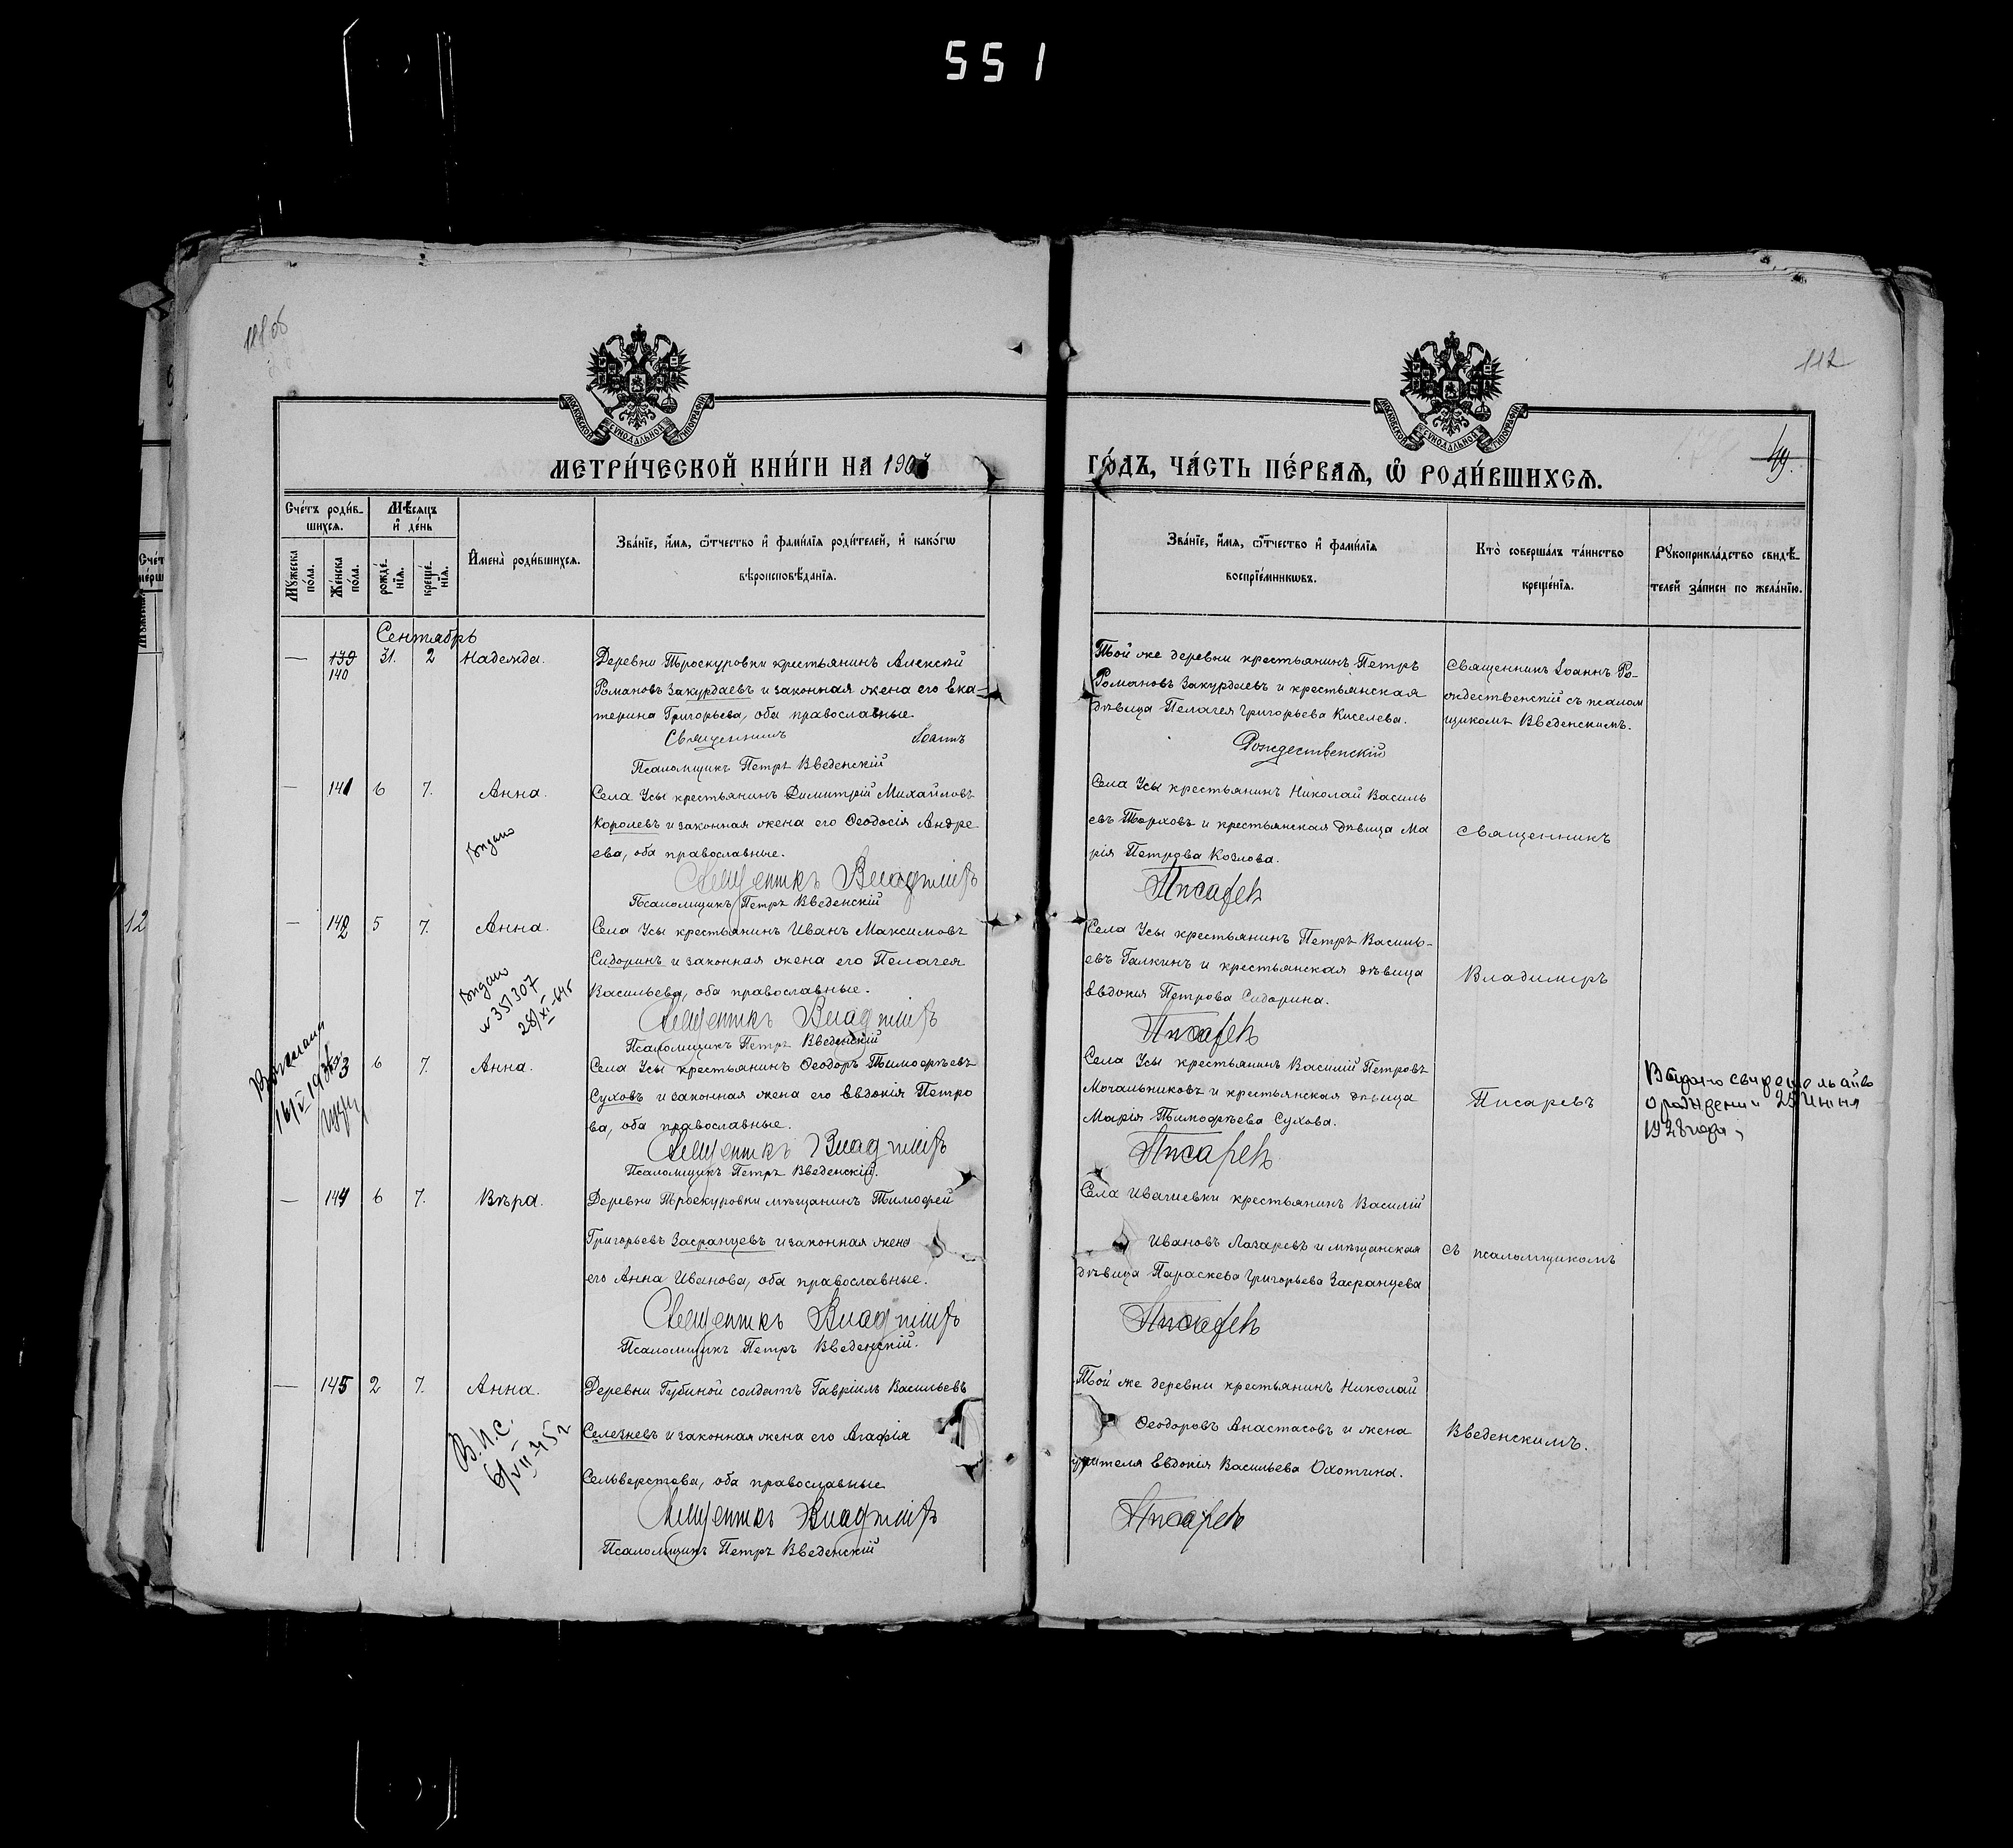 551
112
49.
МОСКОВСКОЙ СУНОДАЛЬНОЙ ТИПОГРАФІИ
МОСКОВСКОЙ СУНОДАЛЬНОЙ ТИПОГРАФІИ
МЕТРИ́ЧЕСКОЙ КНИ́ГИ НА 1903 ГО́ДЪ, ЧА́СТЬ ПЕ́РВАЯ, Ѡ҆ РОДИ́ВШИХСЯ.
Сче́тъ роди́в-
шихся.
Мѣ́сяцъ
и҆ де́нь
Мꙋ́жеска по́ла.
Же́нска по́ла.
рожде́-
нїя.
креще́-
нїя.
И҆мена̀ роди́вшихся.
Зва́нїе, и҆́мя, ѻ҆́тчество и҆ фами́лїя роди́телей, и҆ како́гѡ
вѣроисповѣ́данїя.
Зва́нїе, и҆́мя, ѻ҆́тчество и҆ фами́лїя
воспрїе́мникѡвъ.
Кто̀ соверша́лъ та́инство
креще́нїя.
Рꙋкоприкла́дство свидѣ́-
телей за́писи по жела́нїю.
Сентябрь
— 139 31. 2 Надежда.
140
Деревни Троекуровки крестьянинъ Алексѣй
Романовъ Закурдаевъ и законная жена его Ека-
терина Григорьева, оба православные.
Священникъ Іоаннъ Рождественскій
Псаломщикъ Петръ Введенскій
Той же деревни крестьянинъ Петръ
Романовъ Закурдаевъ и крестьянская
дѣвица Пелагея Григорьева Киселева.
Священникъ Іоаннъ Ро-
ждественскій съ псалом
щикомъ Введенскимъ.
— 141 6 7. Анна.
Выдано
Села Усы крестьянинъ Димитрій Михайловъ
Королевъ и законная жена его Ѳеодосія Андре
ева, оба православные.
Священникъ Владиміръ Писаревъ
Псаломщикъ Петръ Введенскій
Села Усы крестьянинъ Николай Василь
евъ Торховъ и крестьянская дѣвица Ма
рія Петрова Козлова.
Священникъ
12
— 142 5 7. Анна.
Выдано
№ 351307
28/XI-64г
Села Усы крестьянинъ Иванъ Максимовъ
Сидоринъ и законная жена его Пелагея
Васильева, оба православные.
Священникъ Владиміръ Писаревъ
Псаломщикъ Петръ Введенскій
Села Усы крестьянинъ Петръ Василь-
евъ Галкинъ и крестьянская дѣвица
Евдокія Петрова Сидорина.
Владиміръ
3 6 7. Анна.
Села Усы крестьянинъ Ѳеодоръ Тимоѳѣевъ
Суховъ и законная жена его Евдокія Петро
ва, оба православные.
Священникъ Владиміръ Писаревъ
Псаломщикъ Петръ Введенскій.
Села Усы крестьянинъ Василій Петровъ
Мочальниковъ и крестьянская дѣвица
Марія Тимоѳѣева Сухова.
Писаревъ
Выдано свидетельство
о рождении 25 июня
1928 года,
— 144 6 7. Вѣра.
Деревни Троекуровки мѣщанинъ Тимоѳей
Григорьевъ Засранцевъ и законная жена
его Анна Иванова, оба православные.
Священникъ Владиміръ Писаревъ
Псаломщикъ Петръ Введенскій.
Села Ивашевки крестьянинъ Василій
Ивановъ Лазаревъ и мѣщанская
дѣвица Параскева Григорьева Засранцева
съ псаломщикомъ
— 145 2 7. Анна.
В.п.с.
6/VII-45г
Деревни Губиной солдатъ Гавріилъ Васильевъ
Селезневъ и законная жена его Агафія
Сельверстова, оба православные
Священникъ Владиміръ Писаревъ
Псаломщикъ Петръ Введенскій
Той же деревни крестьянинъ Николай
Ѳеодоровъ Анастасовъ и жена
учителя Евдокія Васильева Охотина.
Введенскимъ.